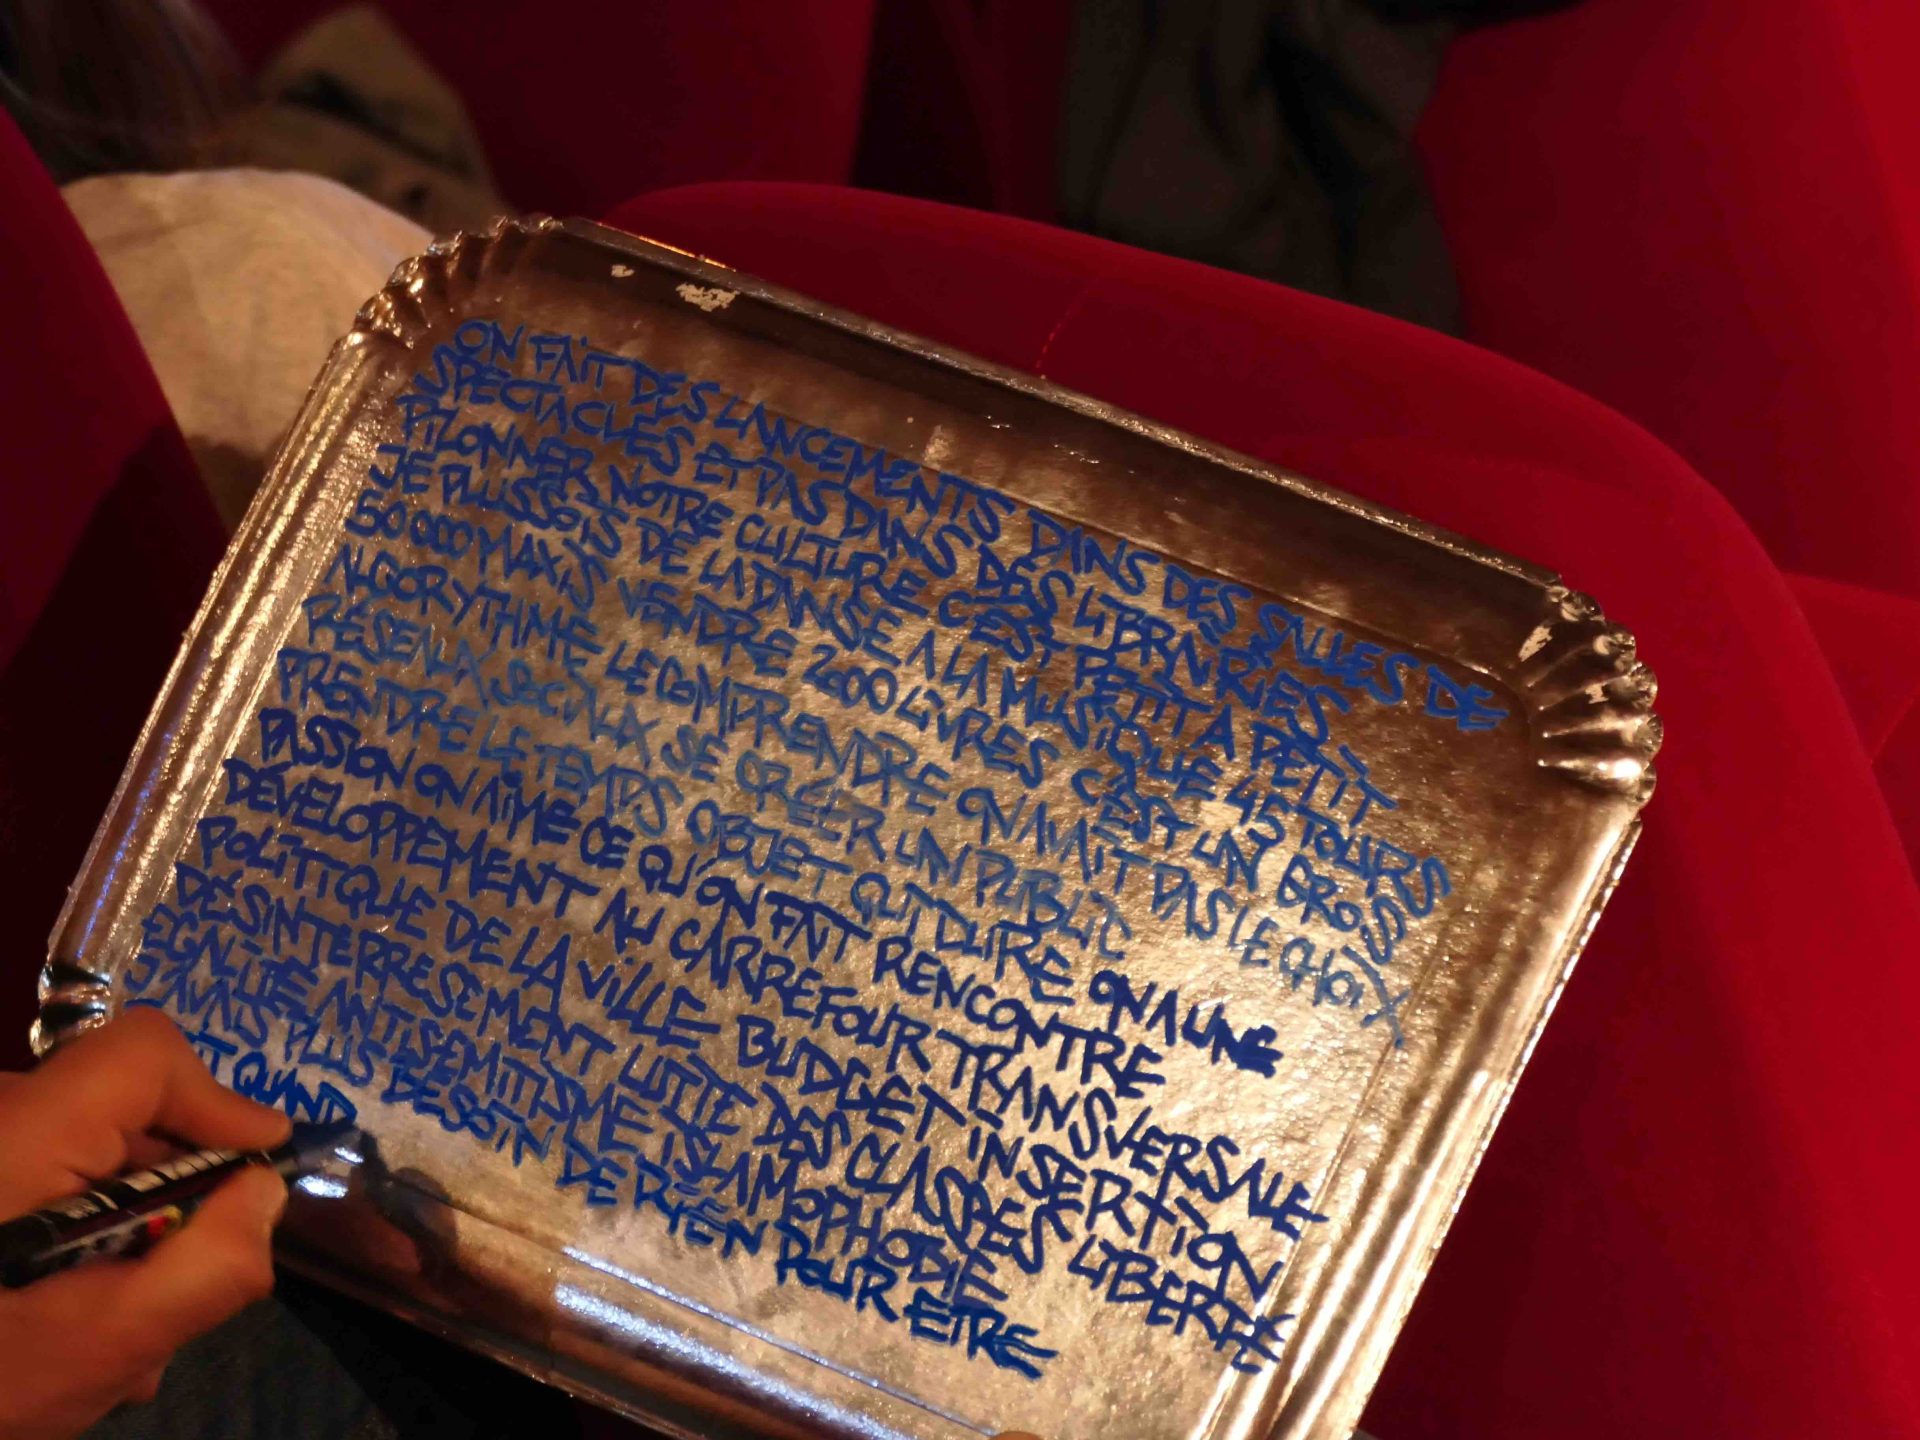 ON FAIT DES LANCEMENTS DANS DES SALLES DE
SPECTACLES ET PAS DANS DES LIBRAIRIES
PILONNER NOTRE CULTURE C'EST PETIT A PETIT
JE PLUSSOIS DE LA DANSE A LA MUSIQUE 45 TOURS
50 000 MAXIS VENDRE 2000 LIVRES C'EST UN GROS
ALGORYTHME LE COMPRENDRE ON AVAIT PAS LE CHOIX
RESEAUX SOCIAUX SE CRÉER UN PUBLIC
PRENDRE LE TEMPS OBJET CULTURE ON A UNE
PASSION ON AIME CE QU'ON FAIT RENCONTRE
DÉVELOPPEMENT AU CARREFOUR TRANSVERSALE
POLITIQUE DE LA VILLE BUDGET INSERTION
DÉSINTERRESSEMENT LUTTE DES CLASSES LIBERTÉ
EGALITÉ ANTISEMITISME ISLAMOPHOBIE
J'AVAIS PLUS BESOIN DE RIEN POUR ETRE
QUAND